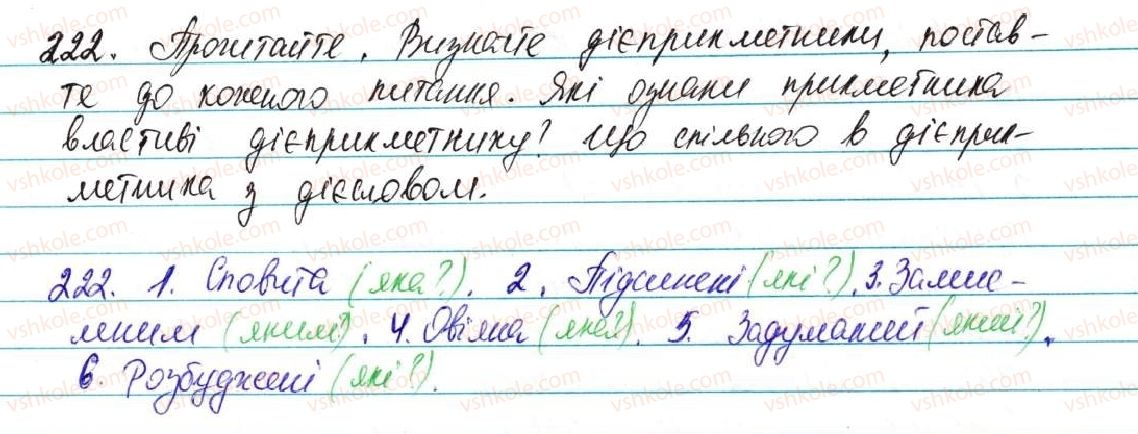 222. Прочитайте. Визначте дієприкметники, постав-
те до кожного питання. Які ознаки прикметника
властиві дієприкметнику? Що спільного в дієприк-
метника з дієсловом.
222. 1. Сповита (яка?). 2. Підсинені (які?). 3. Замис-
леним (яким?). 4. Овіяна (яка?). 5. Задуманий (який?).
6. Розбуджені (які?).